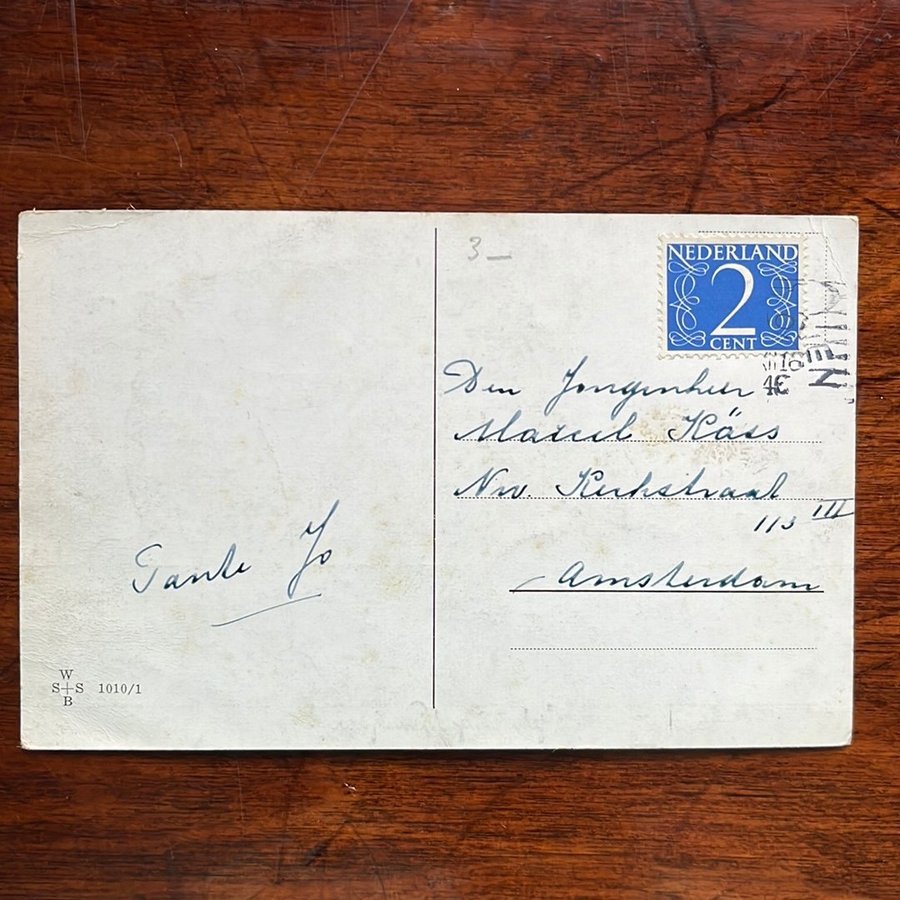 3 —
NEDERLAND
2
CENT
Den Jongenheer
Marcel Käss
Nw. Kerkstraat
113 III
Amsterdam
Tante Jo
W
S+S 1010/1
B